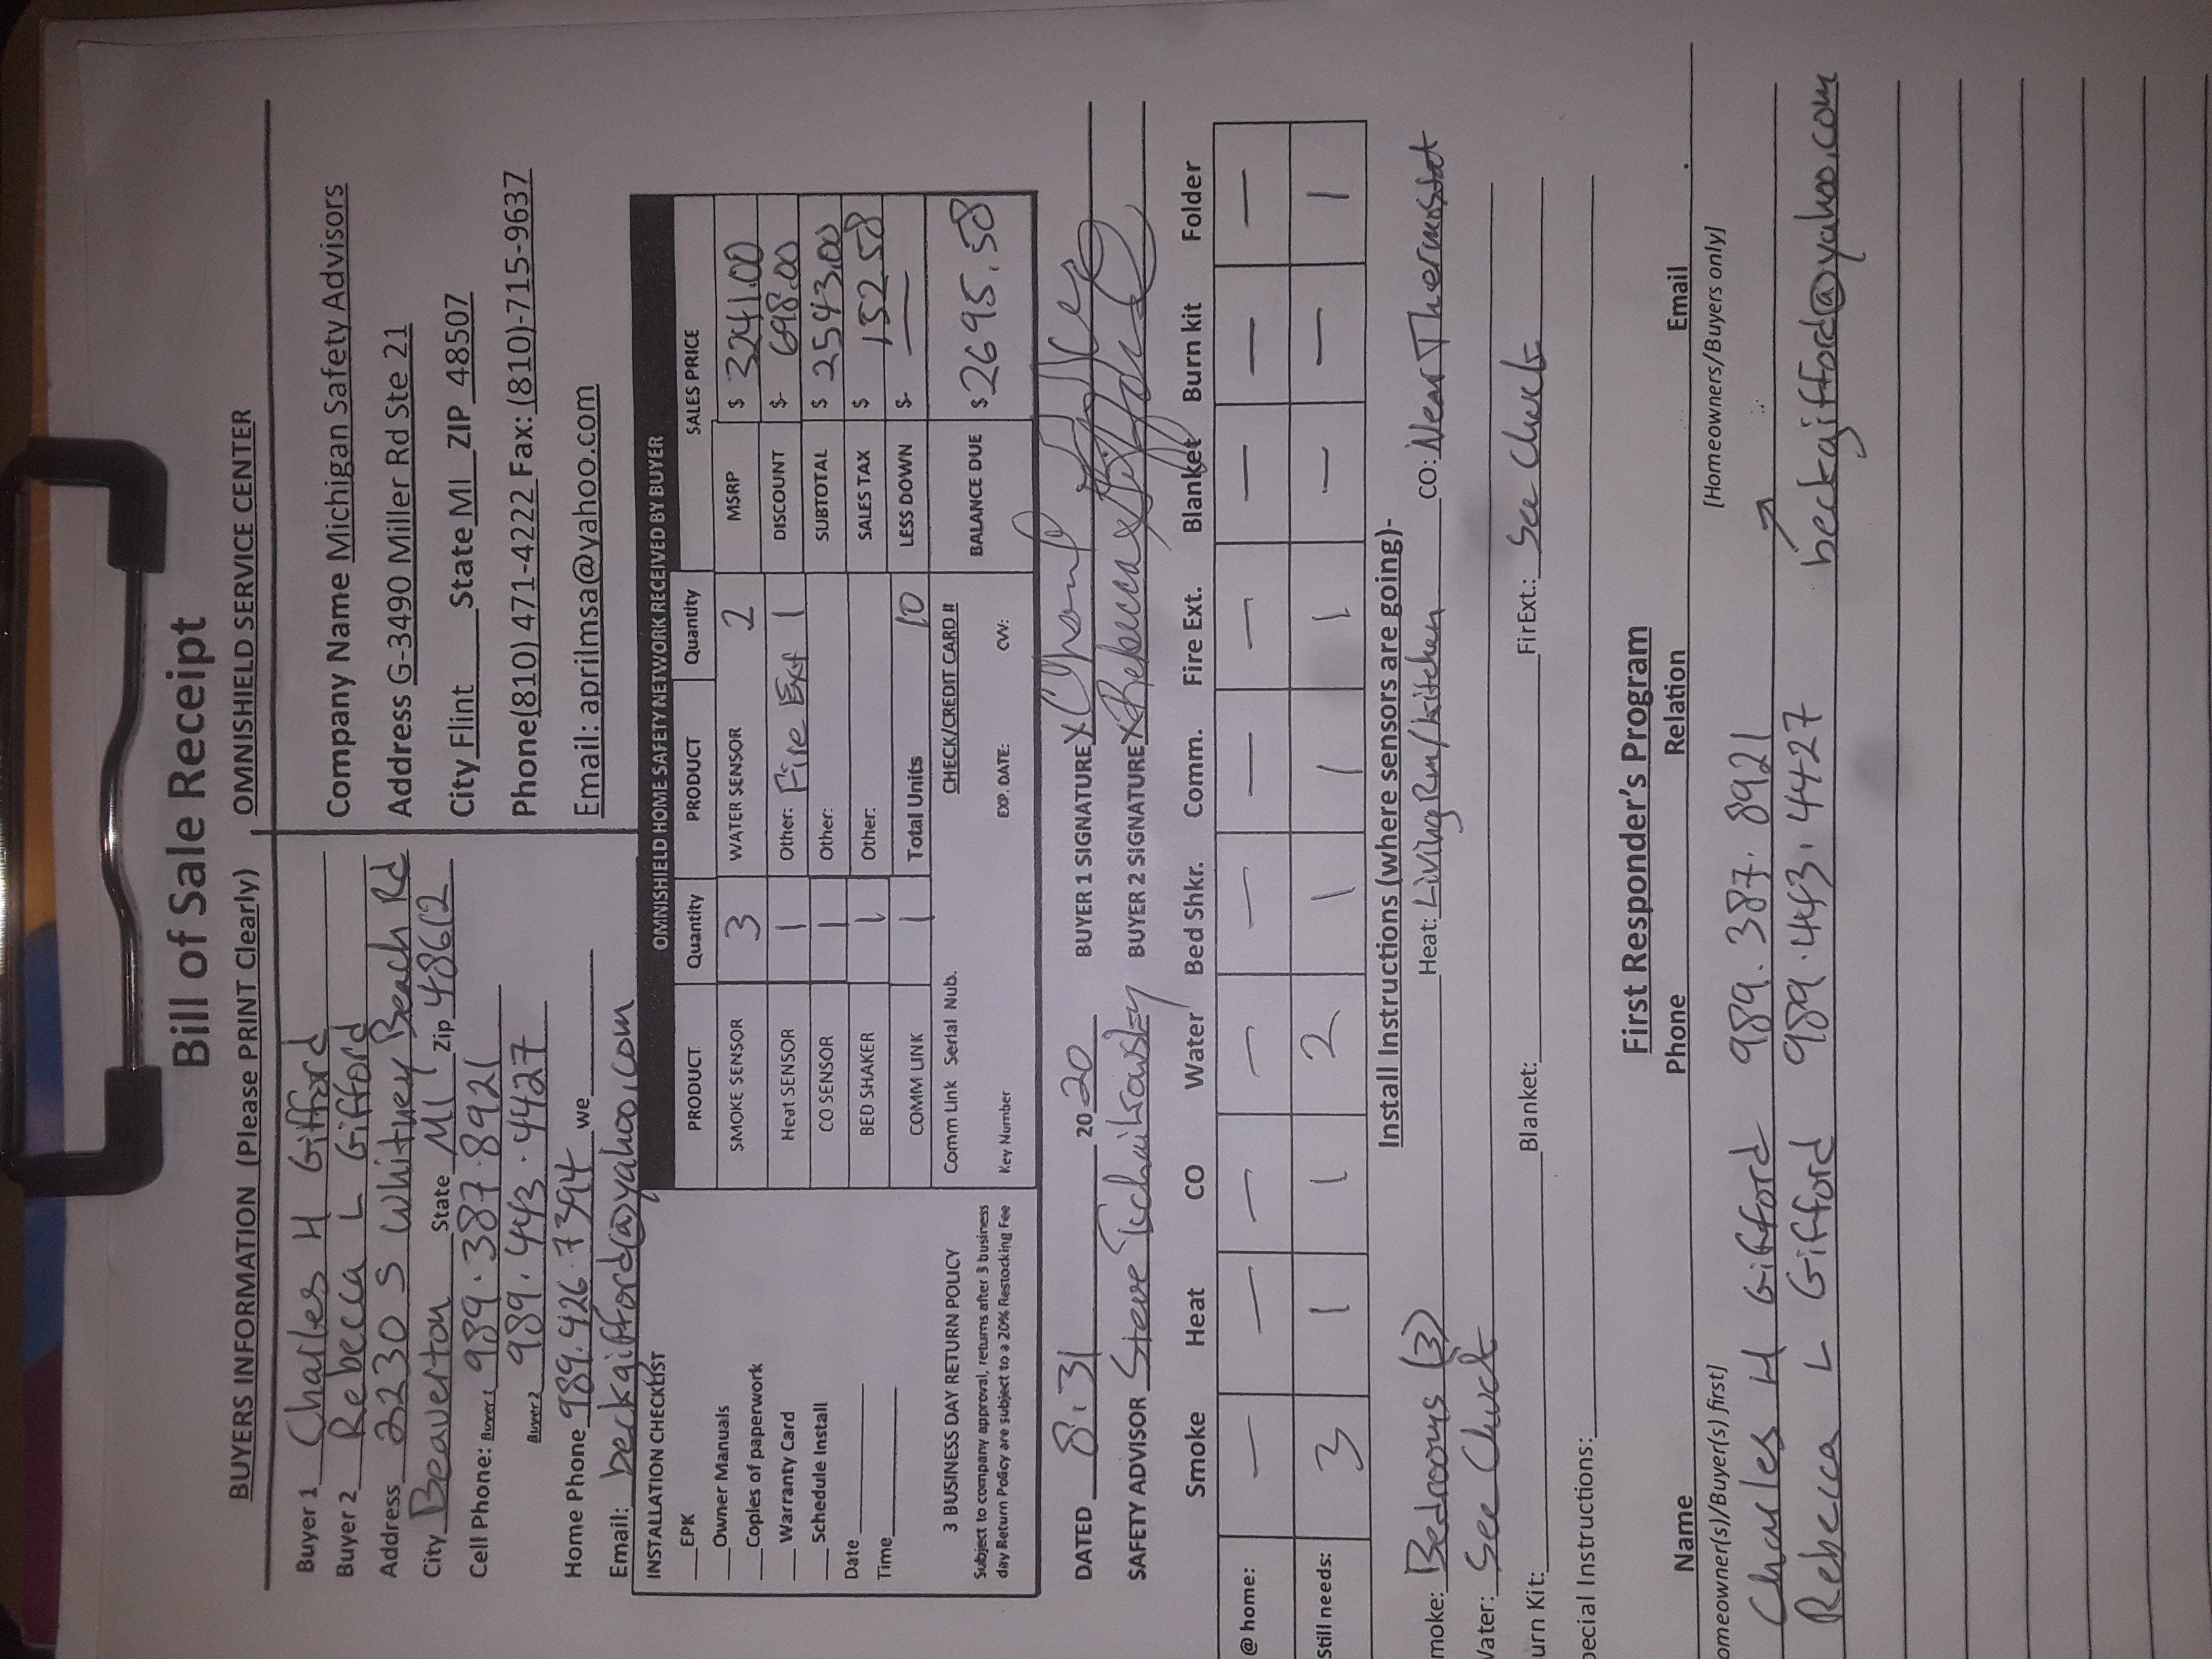 Bill of Sale Receipt
BUYERS INFORMATION (Please PRINT Clearly)
Buyer 1 Charles H Gifford
Buyer 2 Rebecca L Gifford
Address 2230 S Whitney Beach Rd
City Beaverton State MI Zip 48612
Cell Phone: Buyer 1 989.387.8921
Buyer 2 989.443.4427
Home Phone 989.426.7394 we
Email: beckgifford@yahoo.com
OMNISHIELD SERVICE CENTER
Company Name Michigan Safety Advisors
Address G-3490 Miller Rd Ste 21
City Flint State MI ZIP 48507
Phone(810) 471-4222 Fax: (810)-715-9637
Email: aprilmsa@yahoo.com
INSTALLATION CHECKLIST
EPK
Owner Manuals
Copies of paperwork
Warranty Card
Schedule Install
Date
Time
3 BUSINESS DAY RETURN POLICY
Subject to company approval, returns after 3 business
day Return Policy are subject to a 20% Restocking Fee
OMNISHIELD HOME SAFETY NETWORK RECEIVED BY BUYER
PRODUCT Quantity PRODUCT Quantity SALES PRICE
SMOKE SENSOR 3 WATER SENSOR 2 MSRP $ 3241.00
Heat SENSOR 1 Other: Fire Ext 1 DISCOUNT $- 698.00
CO SENSOR 1 Other: SUBTOTAL $ 2543.00
BED SHAKER 1 Other: SALES TAX $ 152.58
COMM LINK 1 Total Units 10 LESS DOWN $- —
Comm Link Serial Nub. CHECK/CREDIT CARD # BALANCE DUE $ 2695.58
Key Number EXP. DATE: CVV:
DATED 8.31 2020 BUYER 1 SIGNATURE X
SAFETY ADVISOR Steve BUYER 2 SIGNATURE X Rebecca Gifford
Smoke Heat CO Water Bed Shkr. Comm. Fire Ext. Blanket Burn kit Folder
@ home: — — — — — — — — — —
Still needs: 3 1 1 2 1 1 1 — — 1
Install Instructions (where sensors are going)-
moke: Bedrooms (3) Heat: Living Rm/kitchen CO: Near Thermostat
Vater: See Chuck
urn Kit: Blanket: FirExt.: See Chuck
pecial Instructions:
First Responder's Program
Name Phone Relation Email
omeowner(s)/Buyer(s) first] [Homeowners/Buyers only]
Charles H Gifford 989.387.8921
Rebecca L Gifford 989.443.4427 beckgifford@yahoo.com